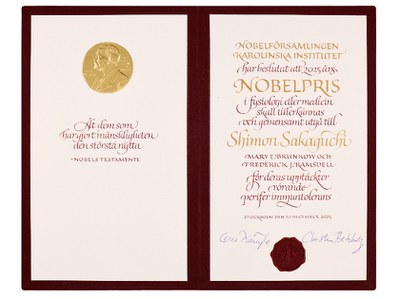 Åt dem som
har gjort mänskligheten
den största nytta
•NOBELS TESTAMENTE
NOBELFÖRSAMLINGEN
KAROLINSKA INSTITUTET
har beslutat att 2025 års
NOBELPRIS
i fysiologi eller medicin
skall tillerkännas
och gemensamt utgå till
Shimon Sakaguchi
MARY E. BRUNKOW OCH
FREDERICK J. RAMSDELL
för deras upptäckter
rörande
perifer immuntolerans
STOCKHOLM DEN 10 DECEMBER, 2025